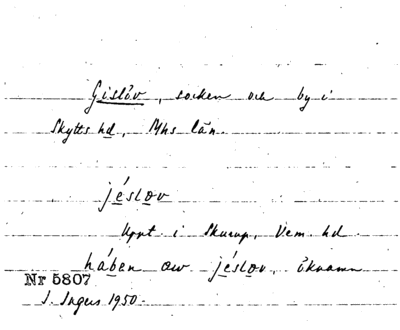 Gislöv, socken och by i
Skytts hd, Mhs län.
jéslov
Uppt. i Skurup, Vem. hd.
håben av jéslov, öknamn
Nr 5807
I. Ingers 1950.